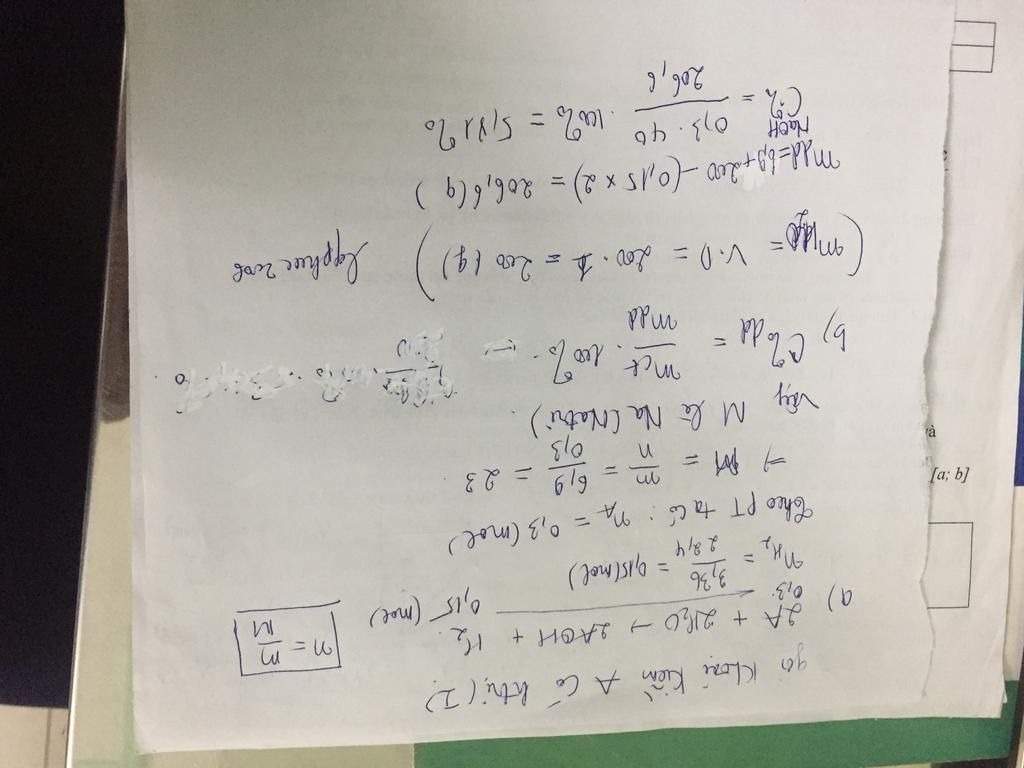 gọi kloại kiềm A có htrị (I)
a) 2A + 2H₂O → 2AOH + H₂
0,3 0,15 (mol)
n = m/M
nH₂ = 3,36/22,4 = 0,15 (mol)
theo PT ta có: nA = 0,3 (mol)
→ M = m/n = 6,9/0,3 = 23
Vậy M là Na (Natri)
b) C% dd = mct/mdd . 100%
= V.D = 200.1 = 200 (g))
mdd = 6,9 + 200 - (0,15 × 2) = 206,6 (g)
C% NaOH = 0,3.40/206,6 . 100% = 5,81%
và
[a; b]